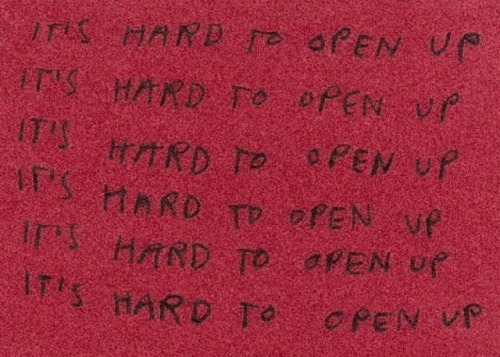 IT'S HARD TO OPEN UP
IT'S HARD TO OPEN UP
IT'S HARD TO OPEN UP
IT'S HARD TO OPEN UP
IT'S HARD TO OPEN UP
IT'S HARD TO OPEN UP